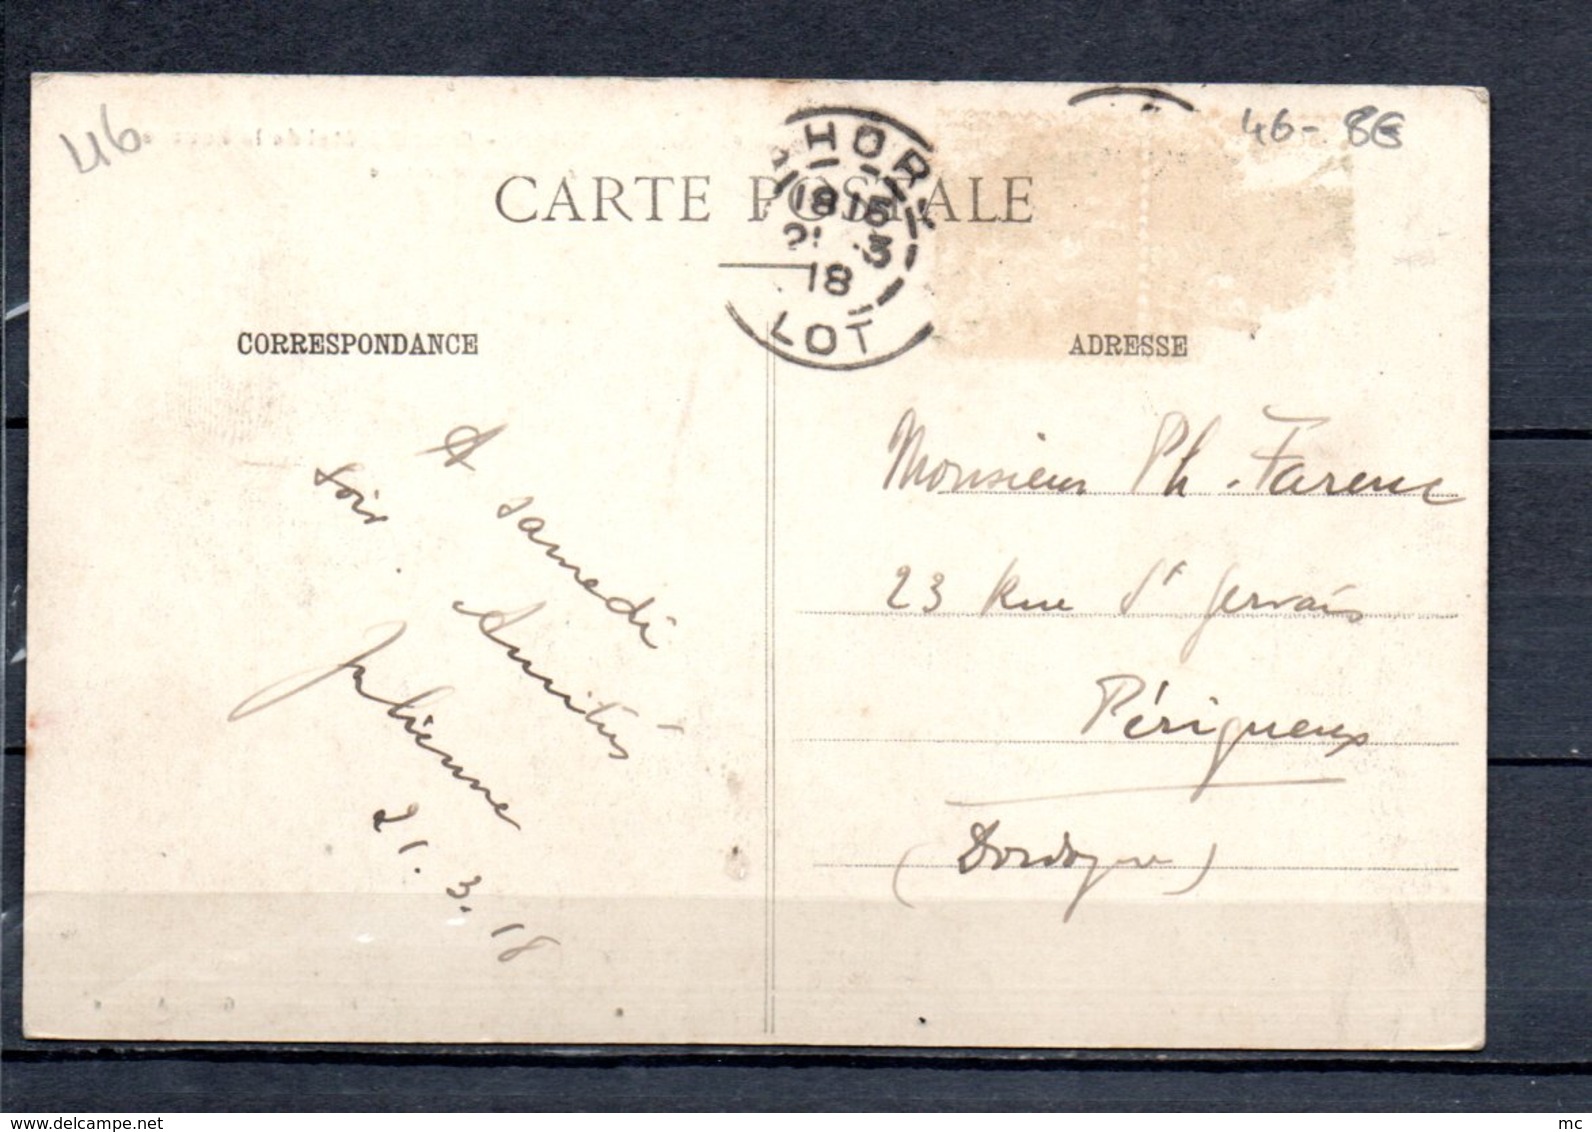 46
46- 8€
CARTE POSTALE
HOR
18 15
21 3
18
LOT
CORRESPONDANCE
ADRESSE
A samedi
soir.
Amitiés
21.3.18
Monsieur Ph. Farenc
23 Rue St Gervais
Périgueux
(Dordogne)
www.delcampe.net
mc